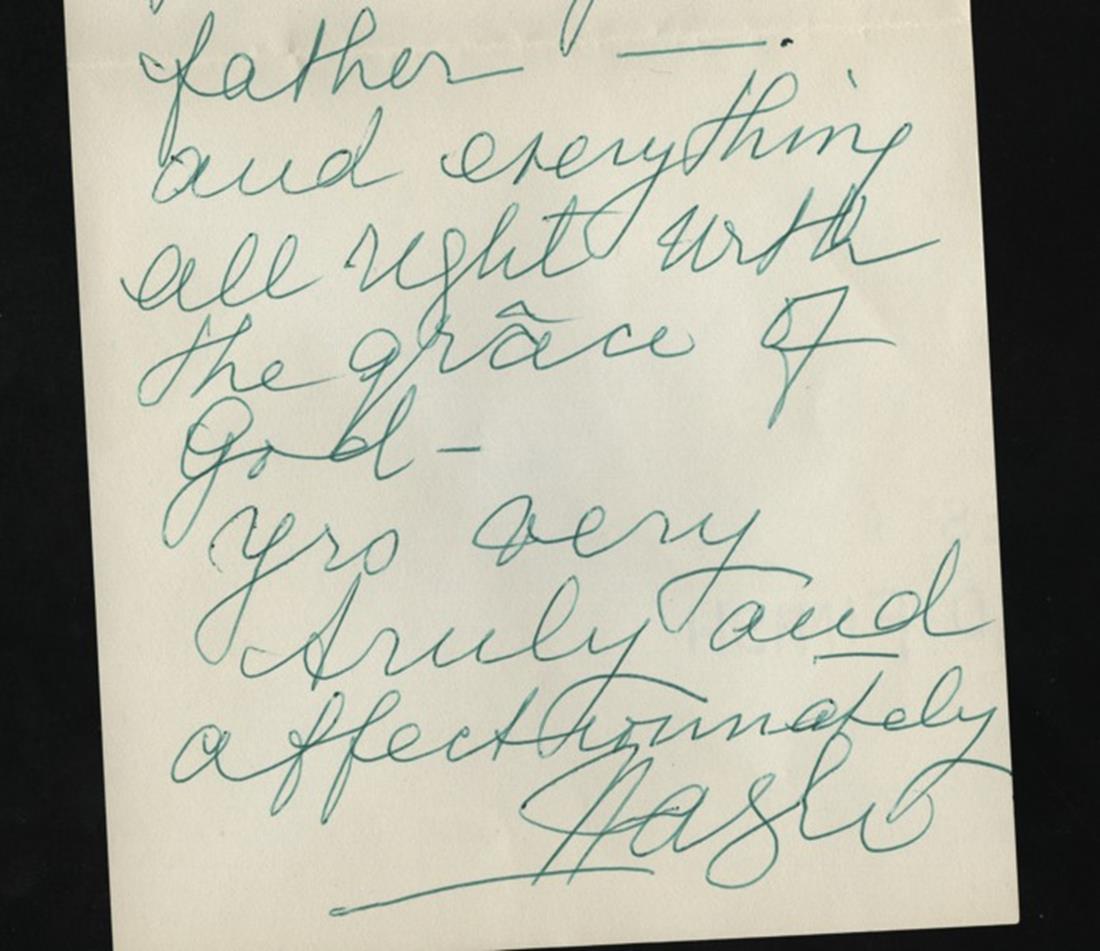 father — .
and everything
all right with
the grãce of
God –
Yrs very
truly and
affectionately